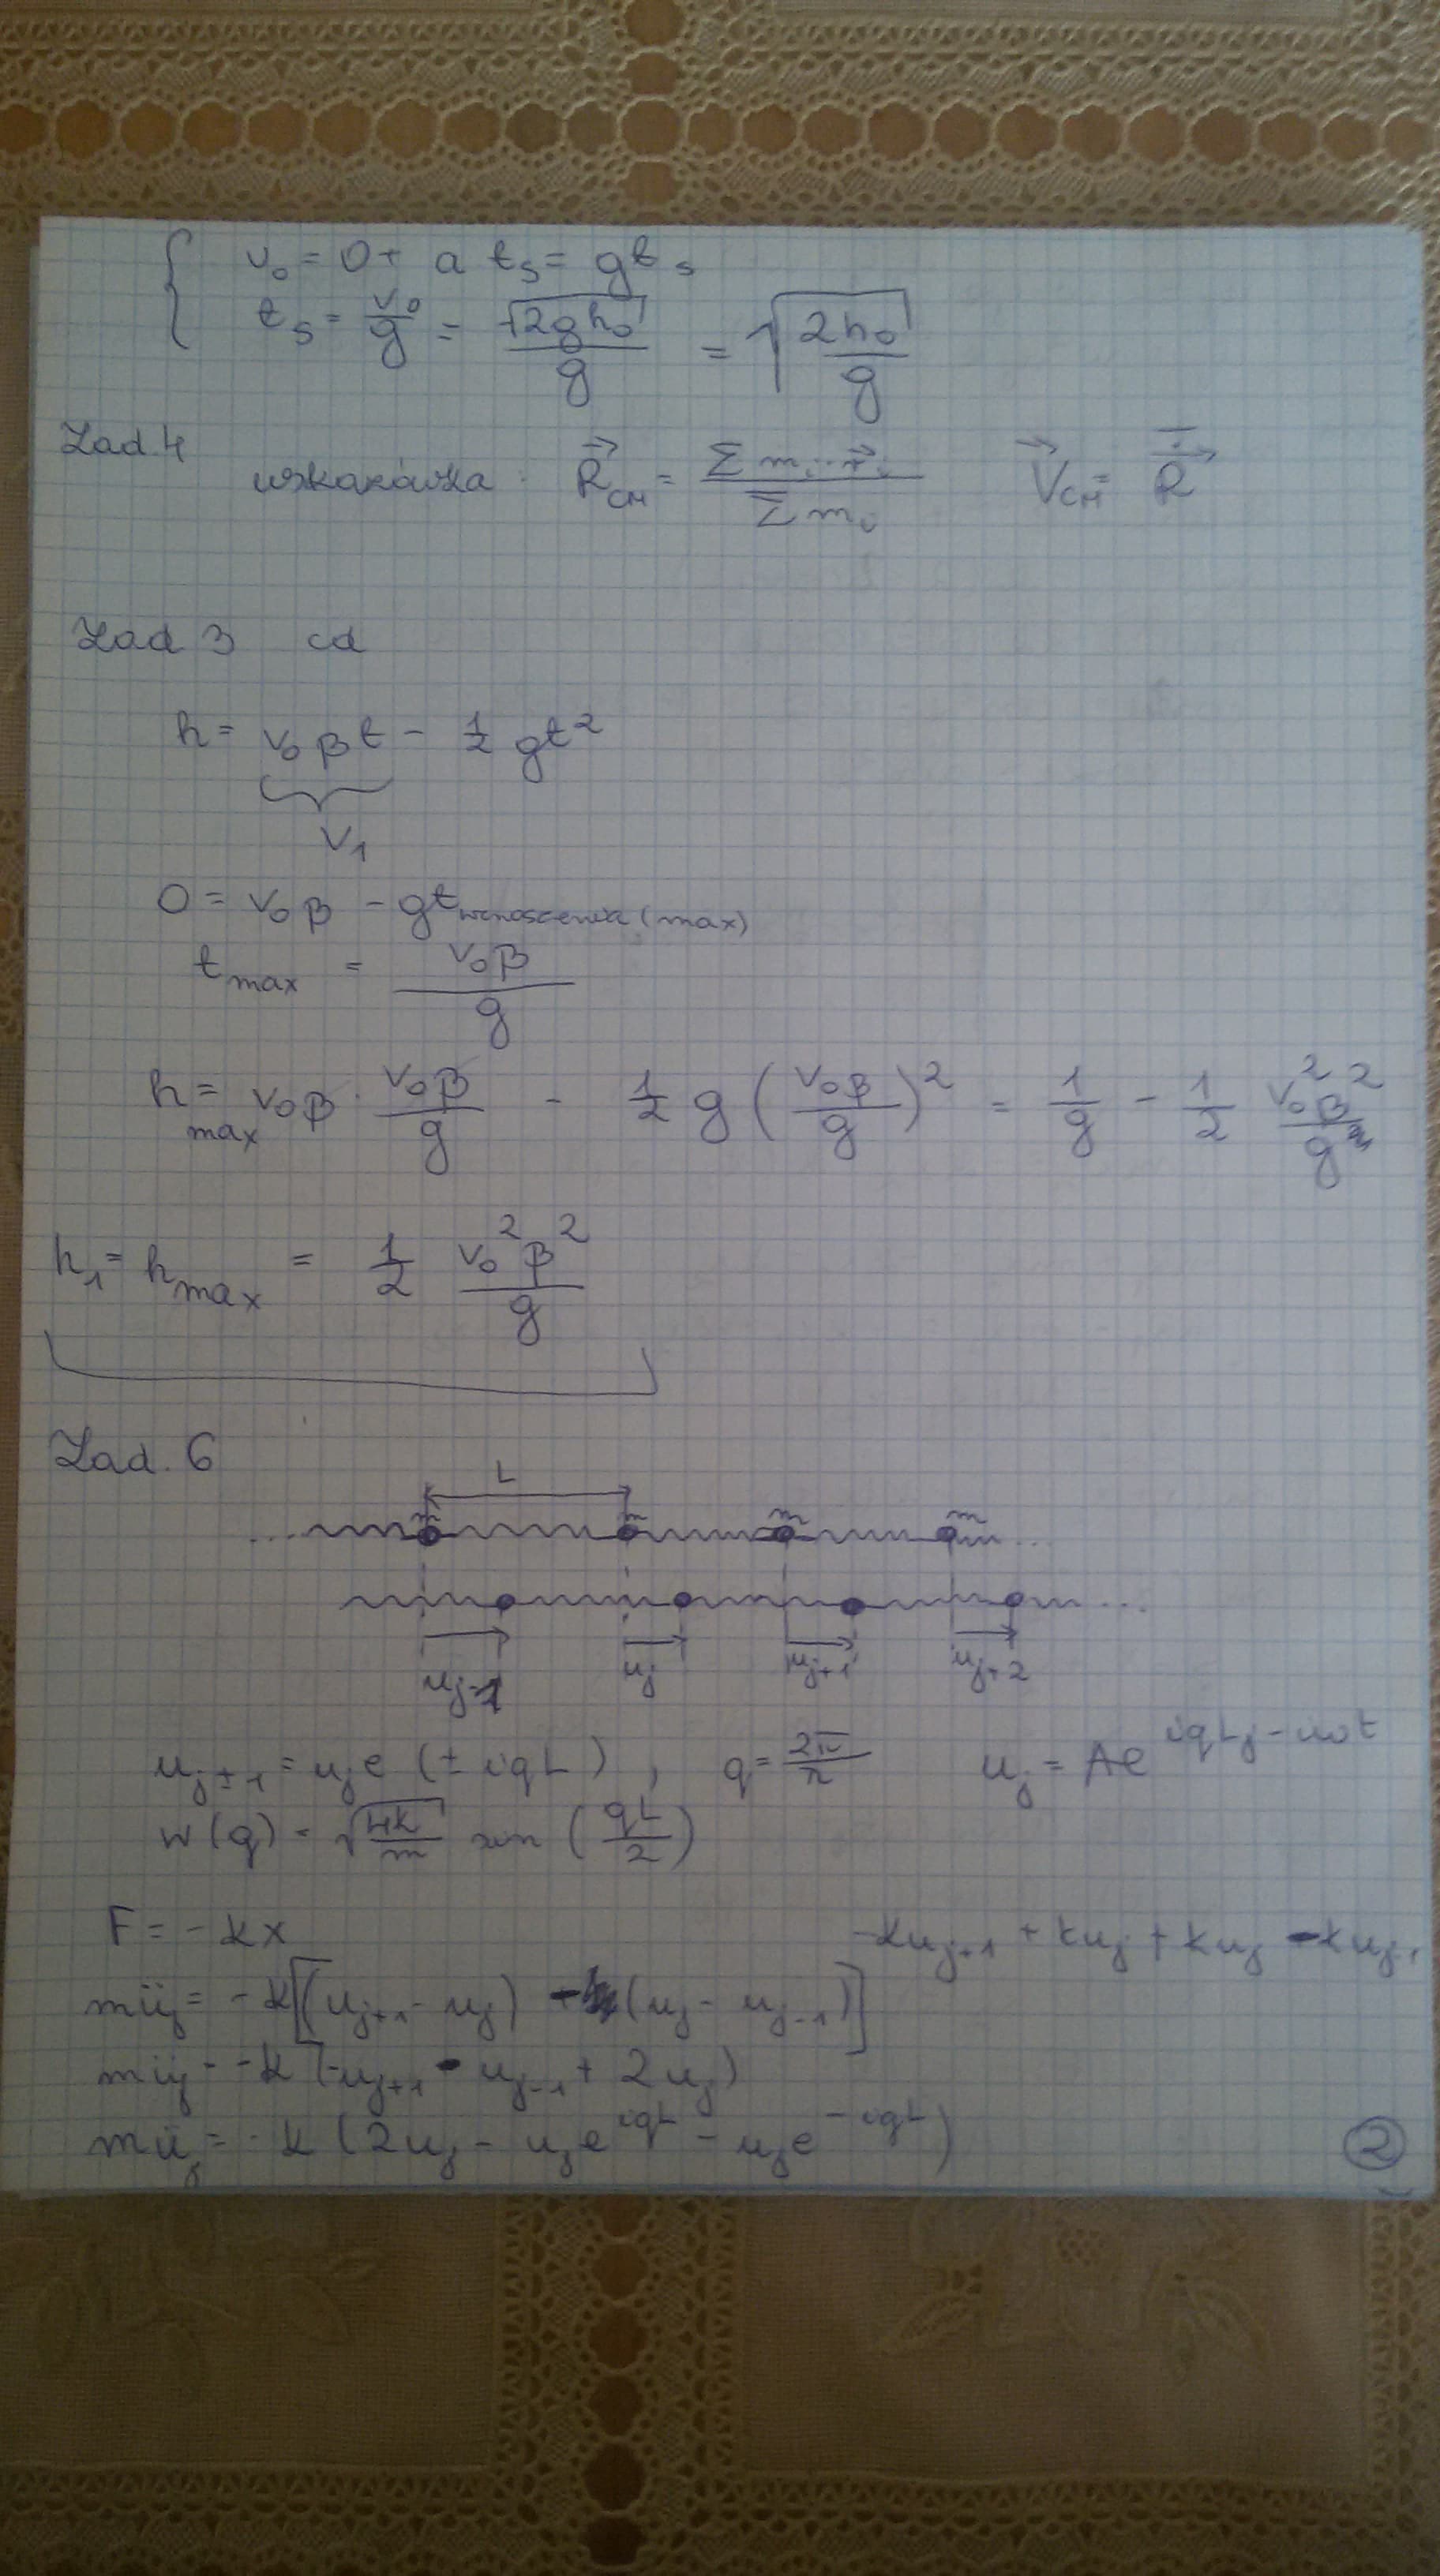 v₀ = 0 + a t_s = g t_s
t_s = v₀/g = √(2gh₀)/g = √(2h₀/g)
Zad. 4
wskazówka : R⃗_CM = Σ mᵢ · r⃗ᵢ / Σ mᵢ   V⃗_CM = Ṙ⃗
Zad 3 cd
h = v₀βt - 1/2 gt²
v₁
0 = v₀β - gt wznoszenia (max)
t_max = v₀β/g
h_max = v₀β · v₀β/g - 1/2 g (v₀β/g)² = 1/g - 1/2 v₀²β²/g
h₁ = h_max = 1/2 v₀²β²/g
Zad. 6
L
... m m m m ...
...
u_j-1 u_j u_j+1 u_j+2
u_j±1 = u_j e (± iqL) , q = 2π/λ   u_j = Ae^(iqLj - iωt)
w(q) = √(4k/m) sin (qL/2)
F = -kx   -ku_j+1 + ku_j + ku_j - ku_j-1
mü_j = -k[(u_j+1 - u_j) - (u_j - u_j-1)]
mü_j = -k (-u_j+1 - u_j-1 + 2u_j)
mü_j = -k (2u_j - u_j e^(iqL) - u_j e^(-iqL))
2